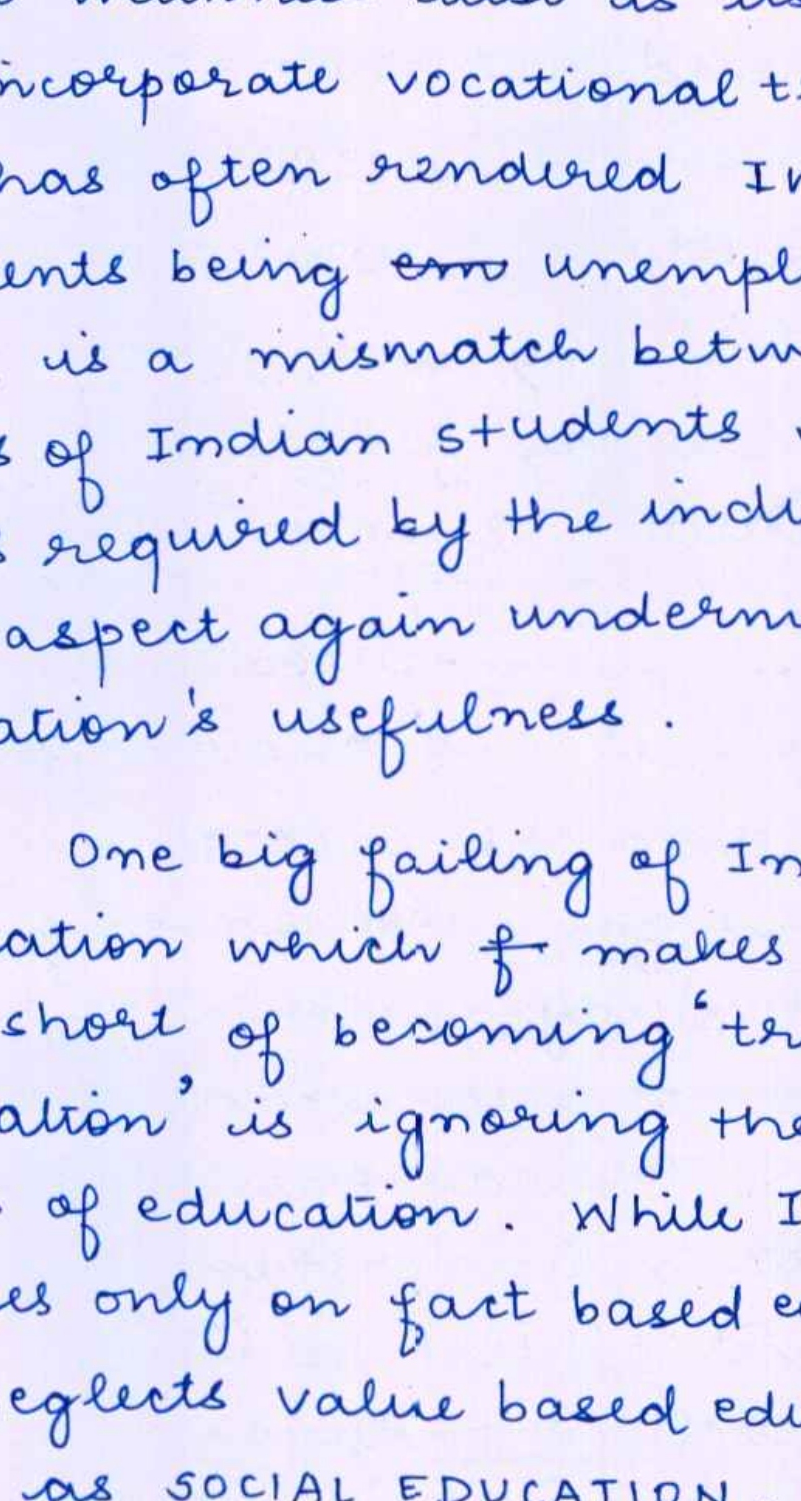 ncorporate vocational t
has often rendered In
ents being em unempl
is a mismatch betw
s of Indian students
s required by the indu
aspect again underm
ation's usefulness.
One big failing of In
ation which f makes
short of becoming 'tr
ation' is ignoring the
of education. While I
es only on fact based e
eglects value based edu
as SOCIAL EDUCATION